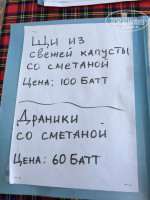 Щи из
свежей капусты
со сметаной
Цена: 100 Батт
Драники
со сметаной
Цена: 60 Батт